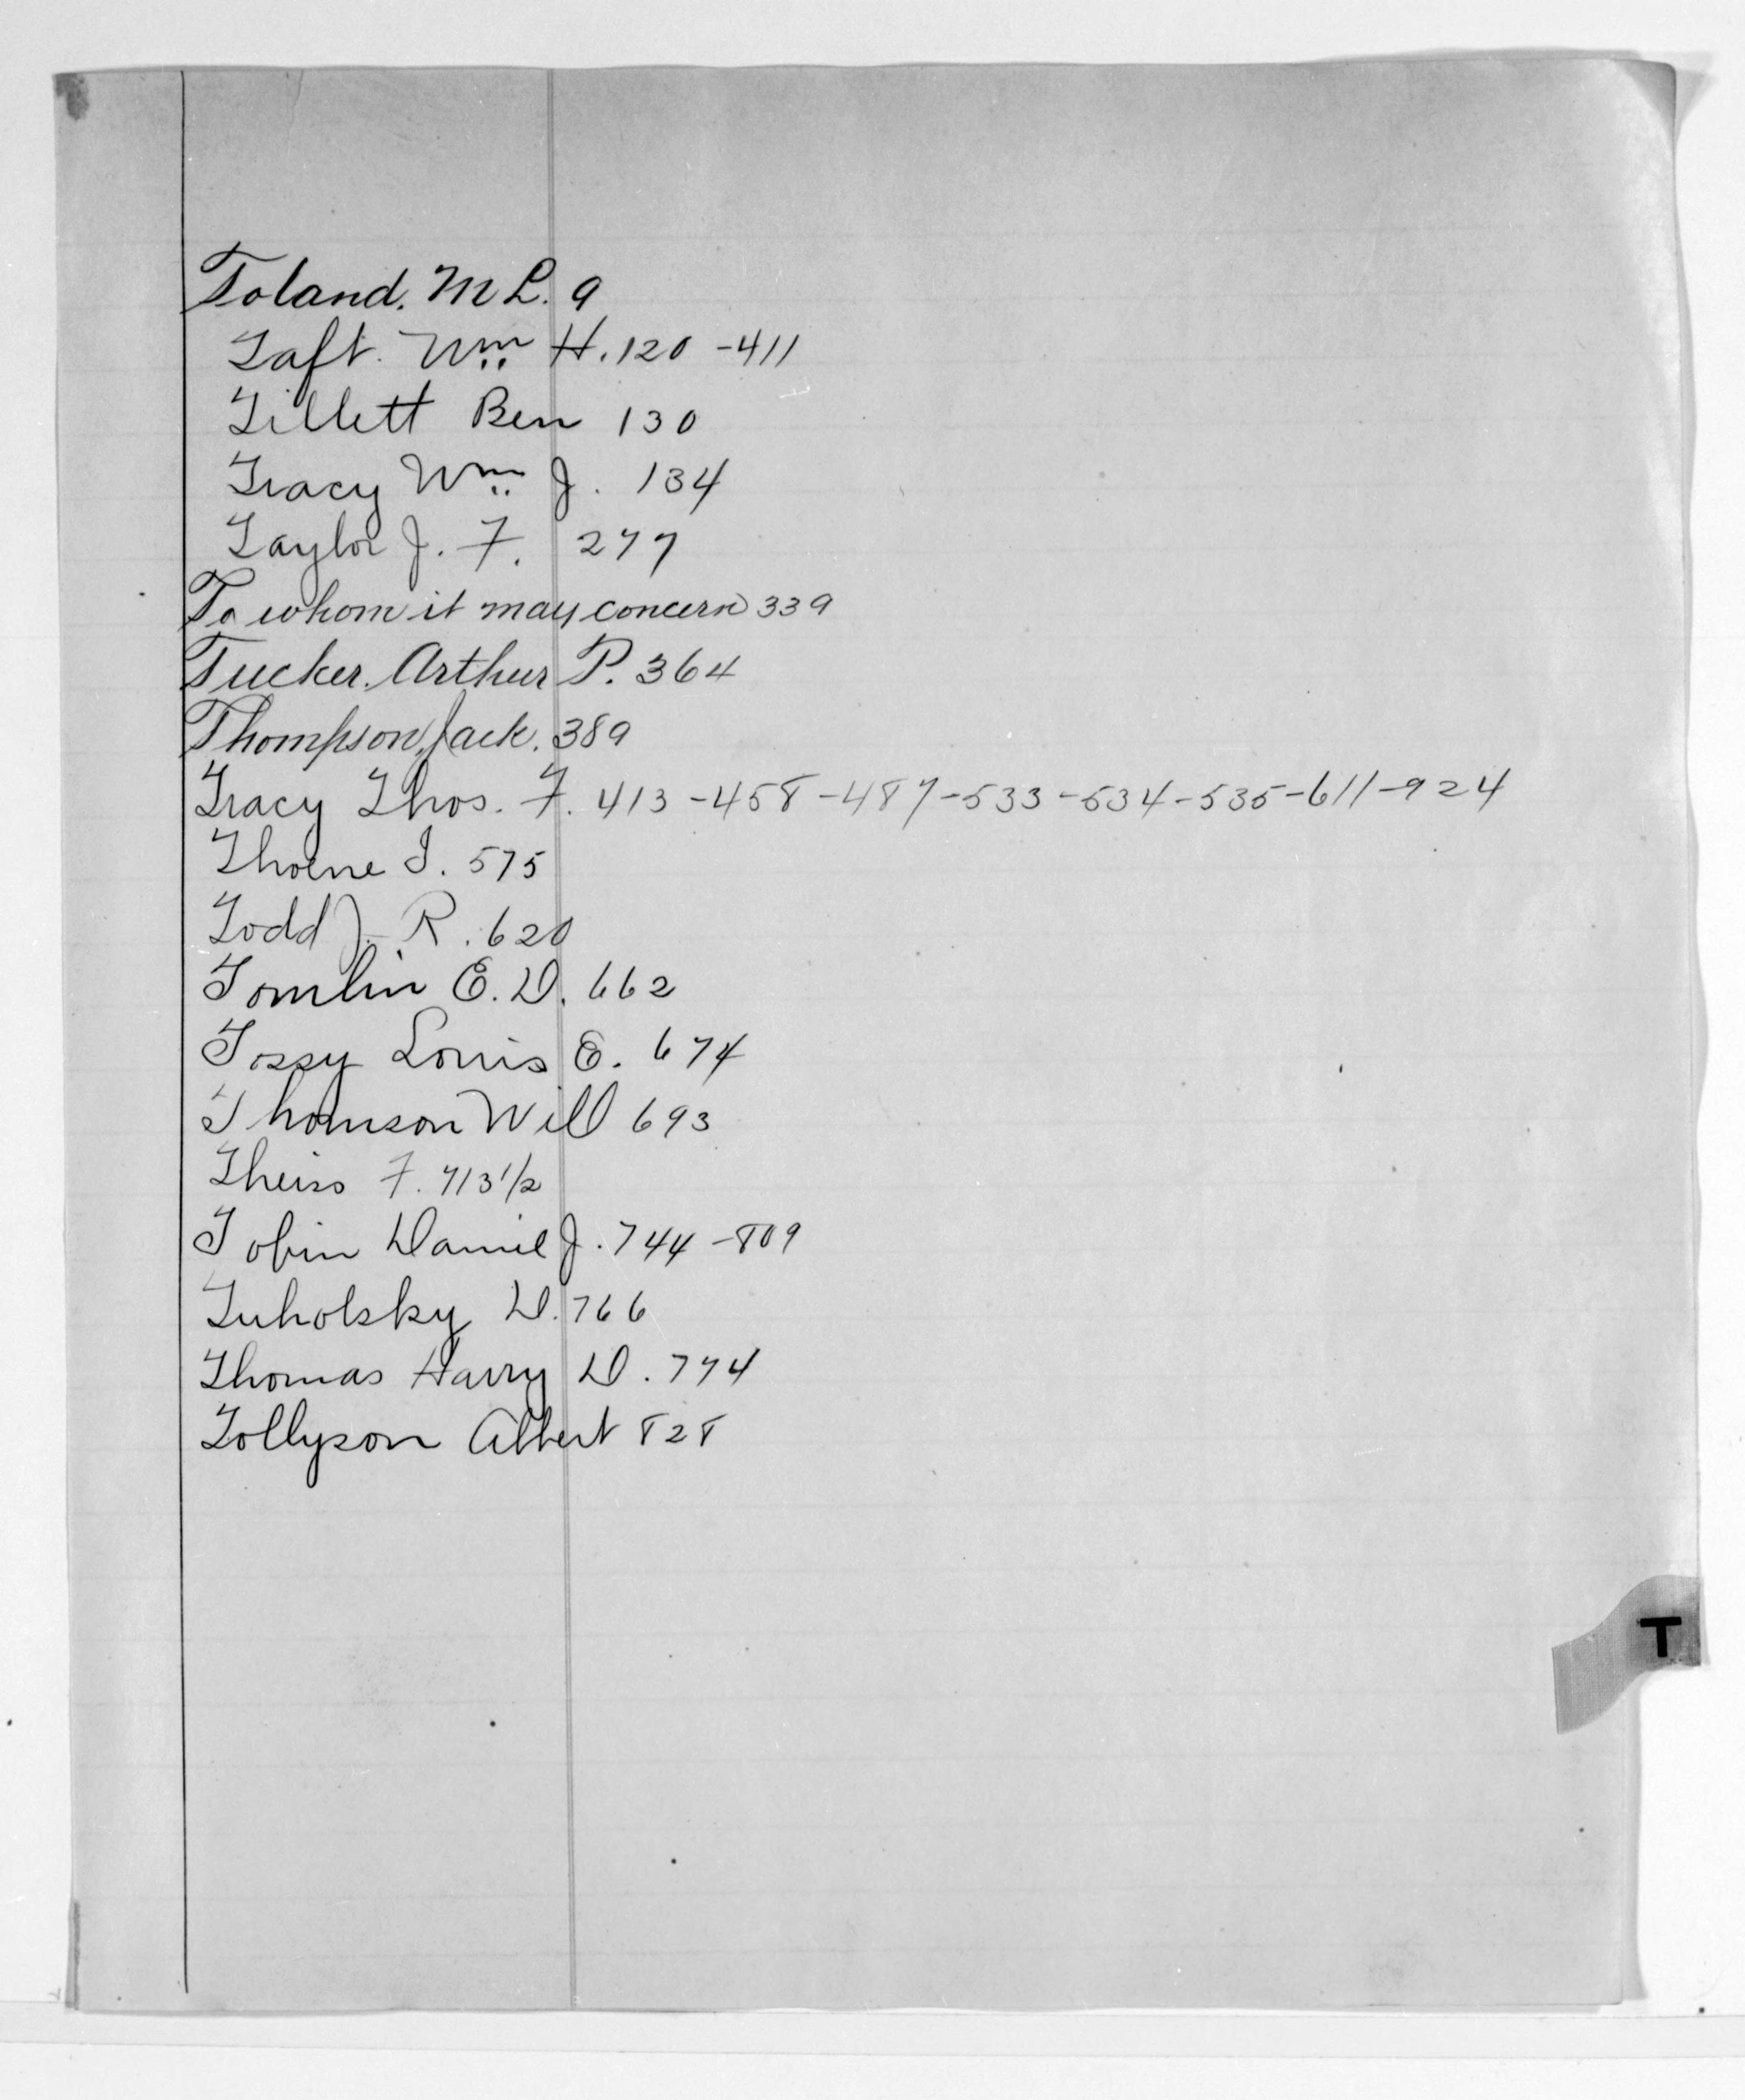 Toland. M L. 9
Taft. Wm H. 120 - 411
Tillett Ben 130
Tracy Wm J. 134
Taylor J. F. 277
To whom it may concern 339
Tucker. Arthur P. 364
Thompson, Jack. 389
Tracy Thos. F. 413 - 458 - 487 - 533 - 534 - 535 - 611 - 924
Thoene I. 575
Todd J. R. 620
Tomlin E. D. 662
Tossy Louis E. 674
Thomson Will 693
Theiss F. 713 1/2
Tobin Daniel J. 744 - 809
Tuholsky D. 766
Thomas Harry D. 774
Tollyson Albert 828
T